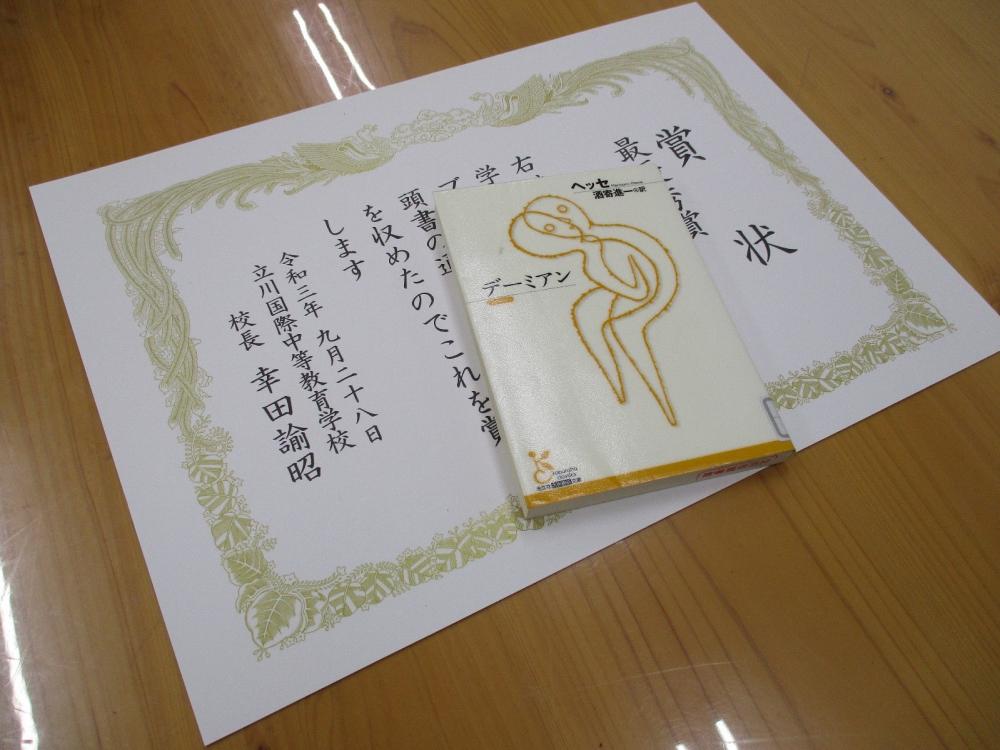 賞状
最優秀賞
右
学
ブ
頭書の通
を収めたのでこれを賞
します
令和三年 九月二十八日
立川国際中等教育学校
校長 幸田諭昭
ヘッセ
酒寄進一 訳
デーミアン